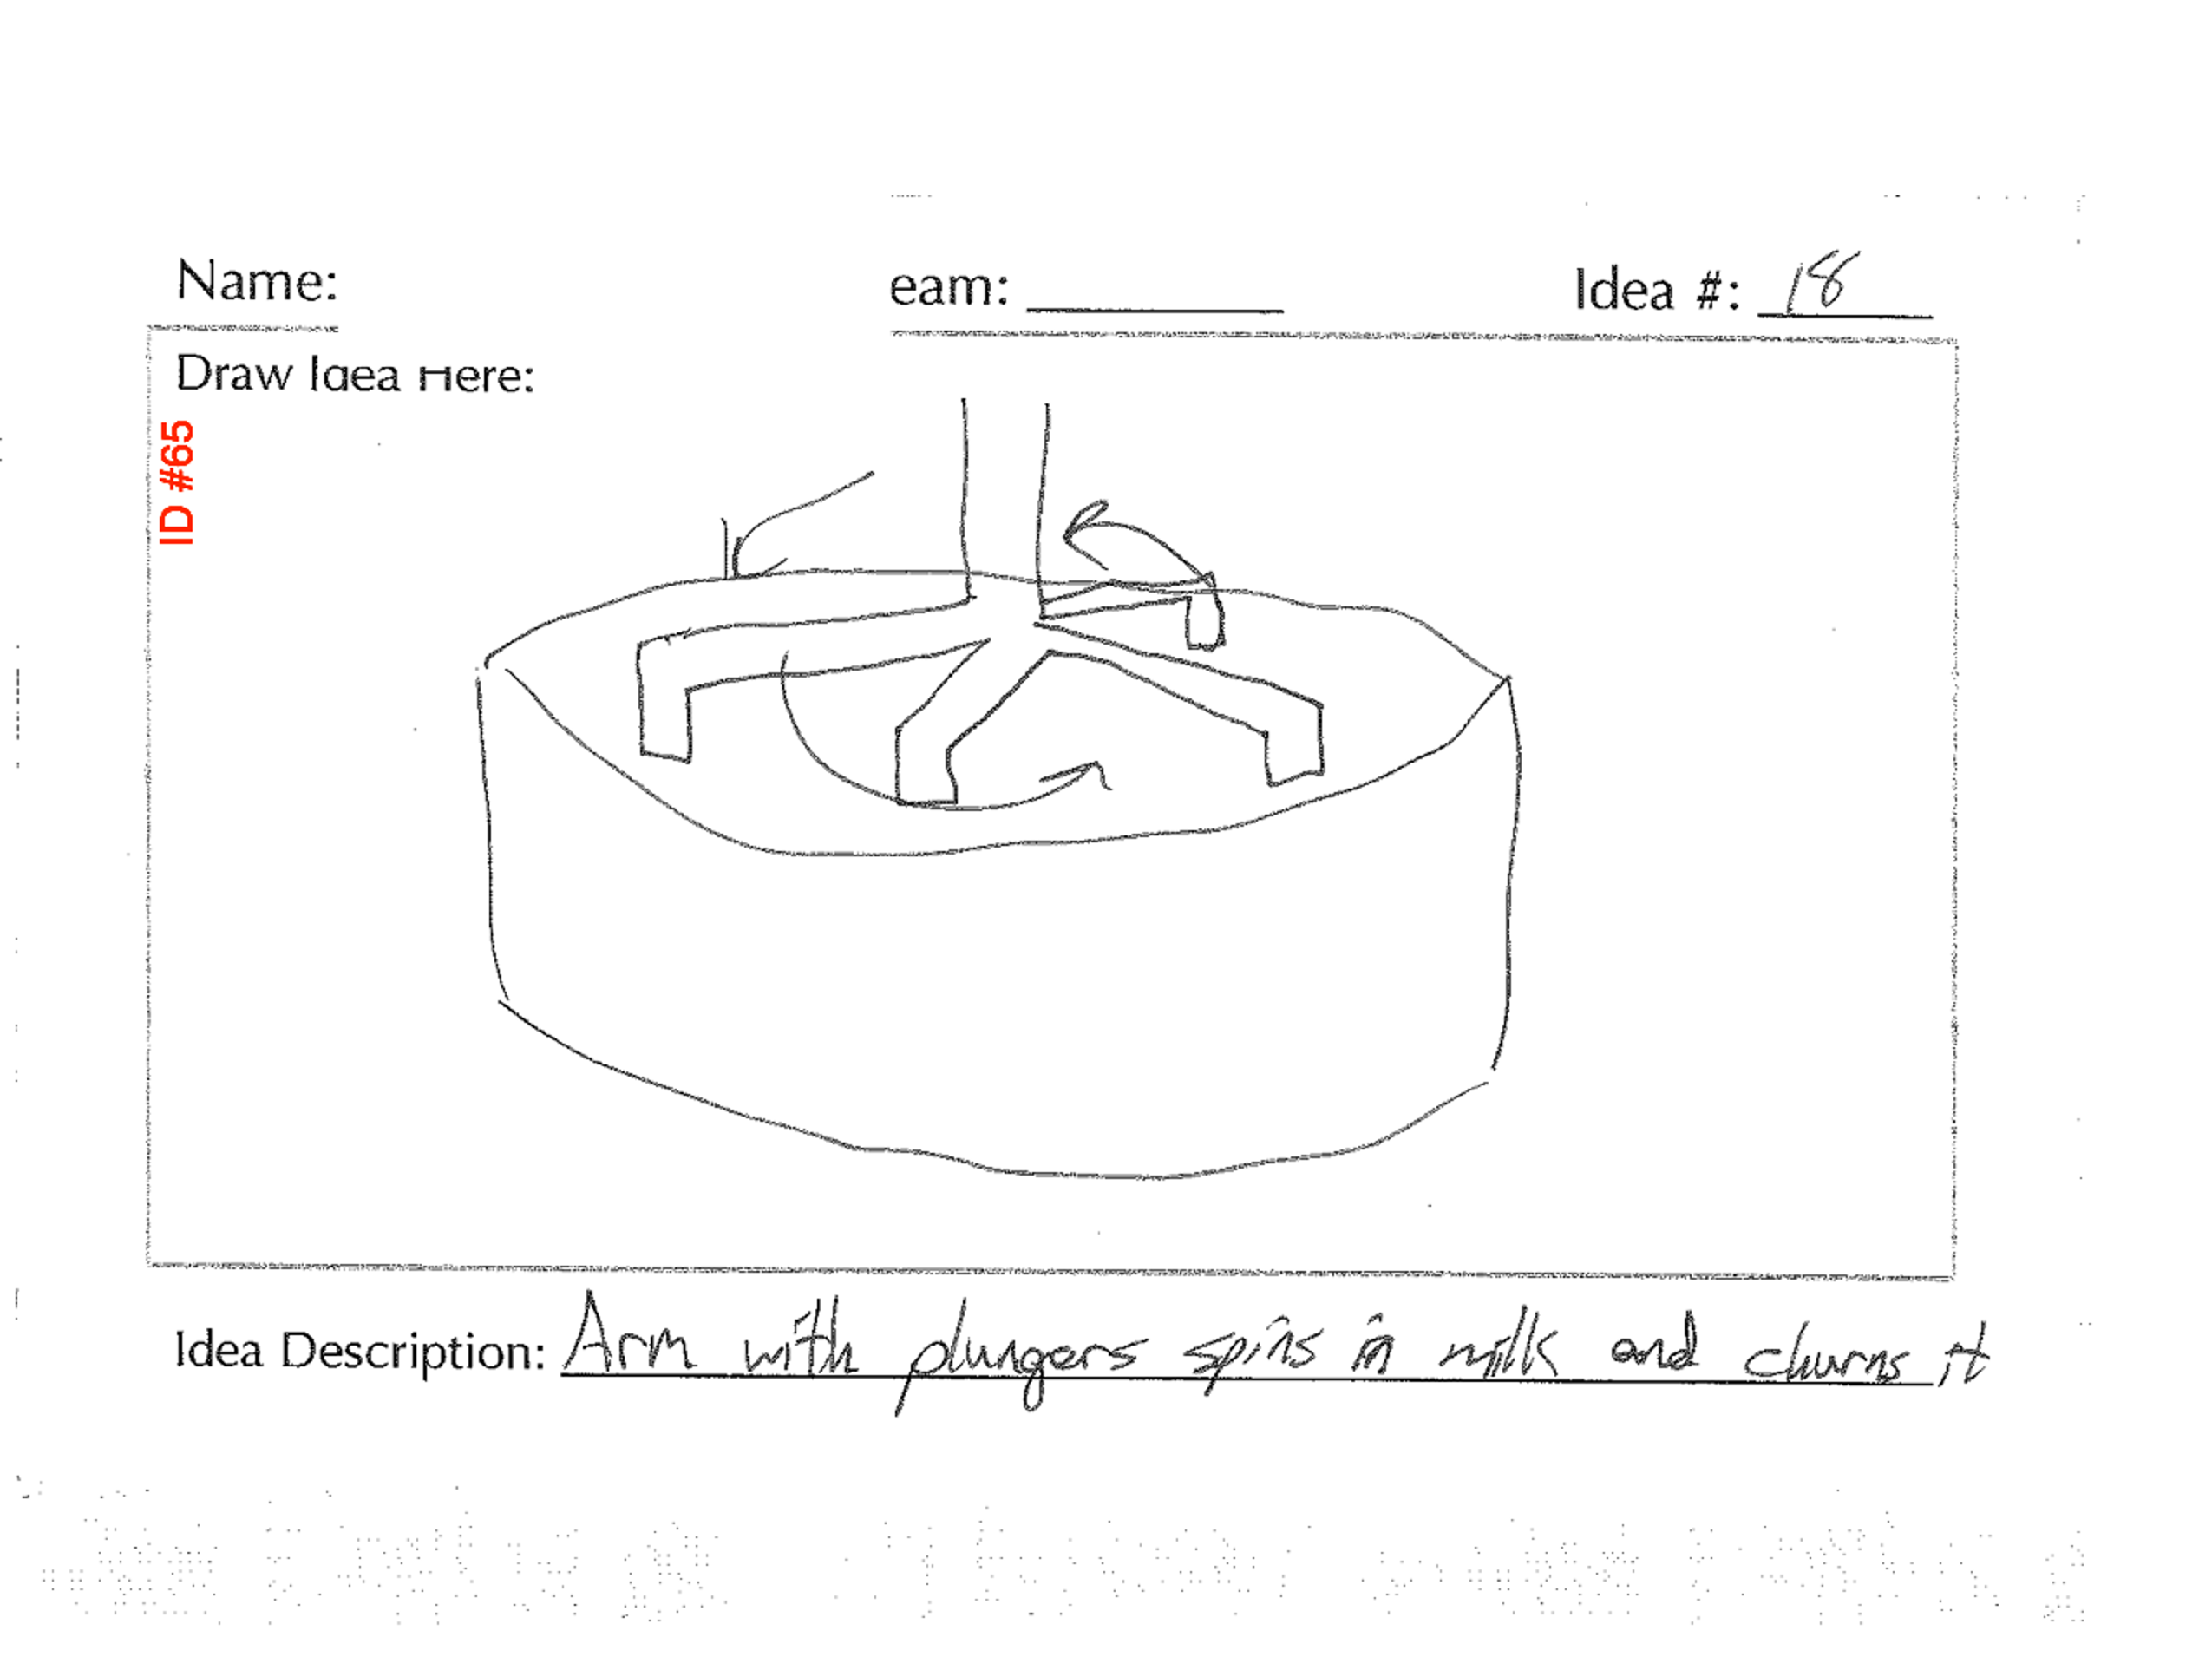 Name: eam: Idea #: 18
Draw Idea Here:
ID #65
Idea Description: Arm with plungers spins in milk and churns it